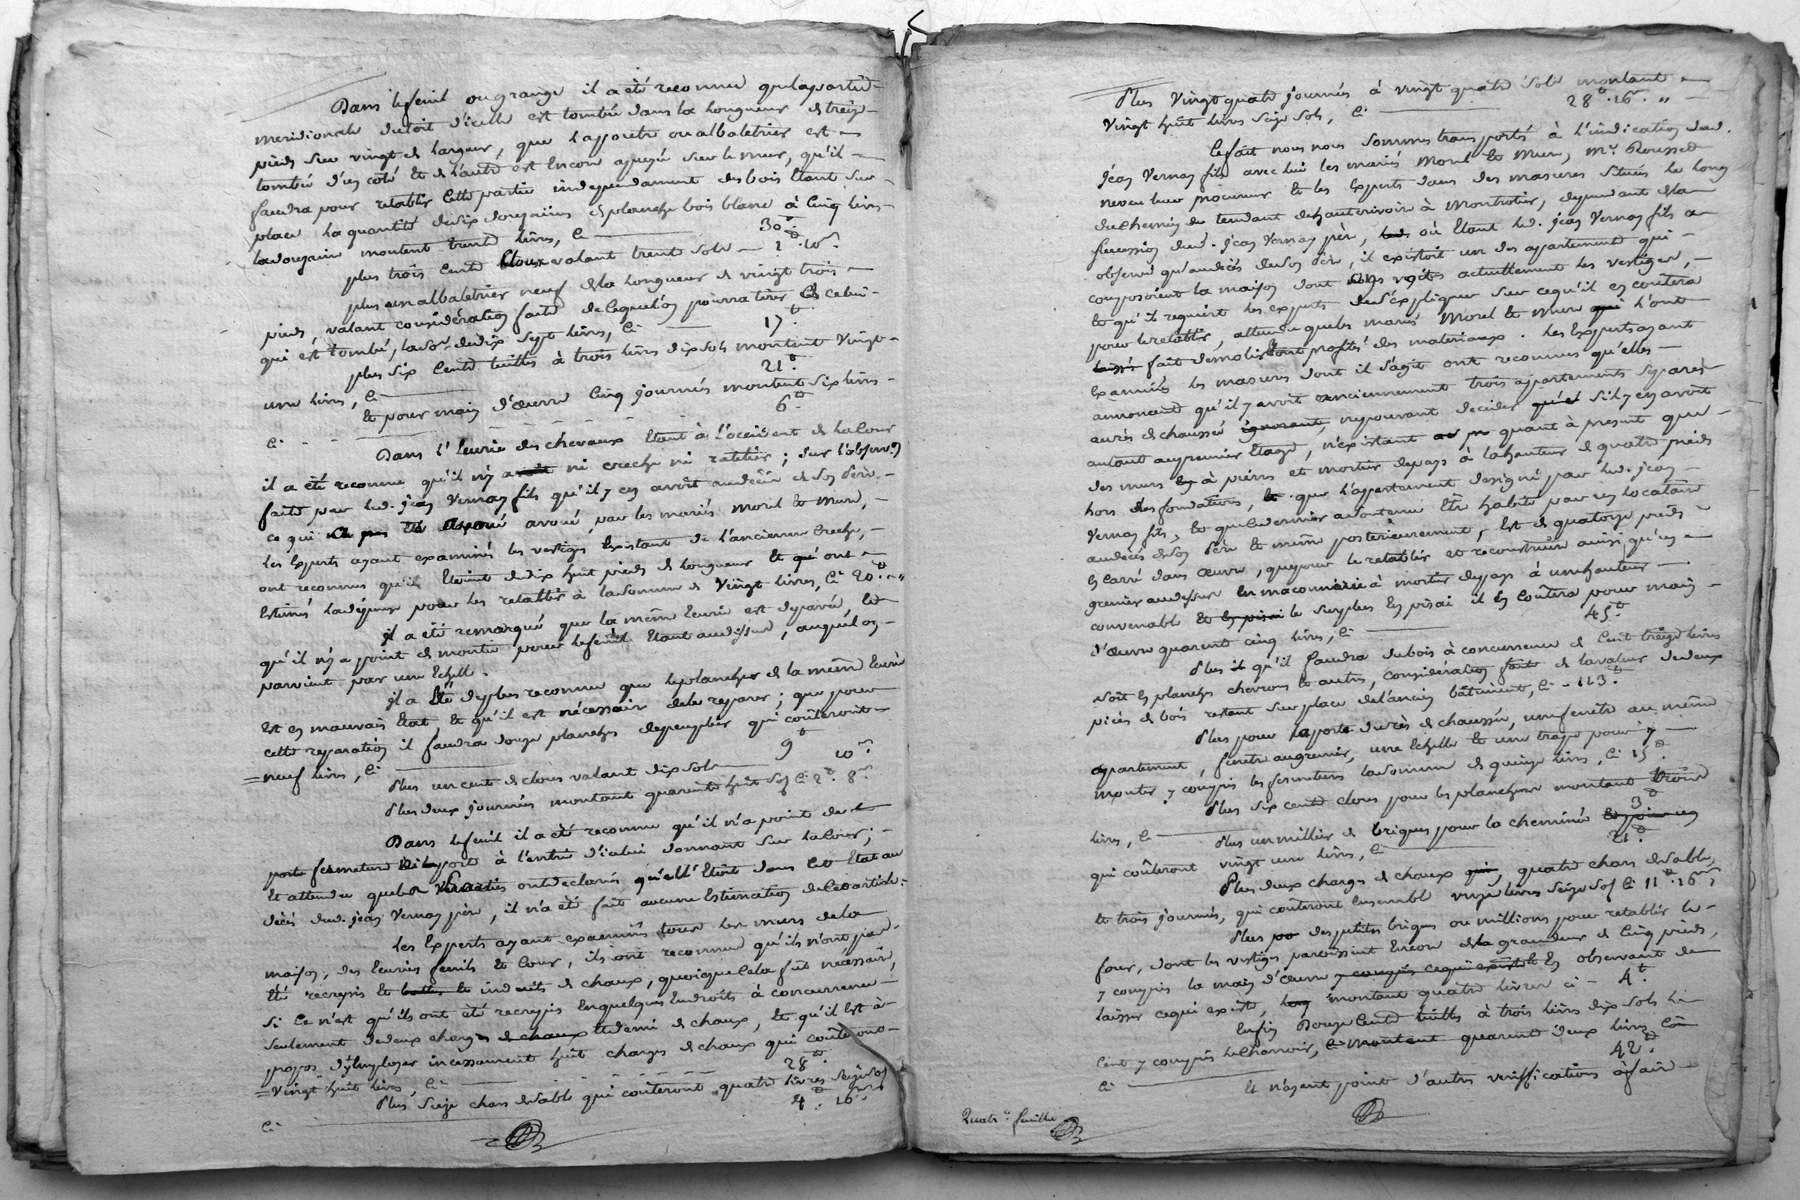 Dans le fenil ou grange il a été reconnu que la partie
meridionale du toit d'icelle est tombée dans la longueur de treize
pieds sur vingt de largeur, que l'apporte ou albaletrier est
tombé d'un coté et de l'autre est encore apuyé sur le mur, qu'il
faudra pour retablir cette partie independament des bois etant sur
place la quantité de dix douzaines de planche bois blanc à cinq livres
la douzaine montent trente livres, ci 30tt
plus trois cents cloux valant trente sols 1 . 10s
plus un albaletrier neuf de la longueur de vingt trois
pieds, valant considération faite de ce qu'on pourra tirer de celui
qui est tombé, la so.e de dix sept livres, ci 17tt
plus six cents tuilles à trois livres dix sols montent vingt
une livres, ci 21tt
et pour main d'œuvre cinq journées montent six livres
ci 6tt
Dans l'ecurie des chevaux etant à l'occident de la cour
il a été reconnu qu'il n'y a ni creche ni ratelier ; sur l'observ.on
faite par led. jean Vernay fils qu'il y en avoit au décès de son père
ce qui avoué par les mariés Morel et Mure,
les Experts ayant examinés les vestiges Existant de l'ancienne creche,
ont reconnus qu'ils etoient de dix huit pieds de longueur et qui ont
Estimés la dépense pour les retablir à la somme de Vingt livres, ci 20tt "
il a été remarqué que la même ecurie est separée, et
qu'il n'y a point de montée pour le fenil etant au dessus, auquel on
parvient par une Echelle.
il a Eté de plus reconnu que le plancher de la même Ecurie
Est en mauvais Etat et qu'il est nécessaire de le reparer ; que pour
cette reparation il faudra douze planches de peuplier qui coûteront
neuf livres, ci 9tt
Plus un cent de clous valant dix sols 10s
Plus deux journées montant quarante huit sols ci 2tt 8s
Dans le fenil il a été reconnu qu'il n'a point de
porte fermeture à l'entrée d'icelui donnant sur la cour ;
Et attendu que les parties ont declarés qu'elle etoit dans cet Etat au
décès dud. jean Vernay père, il n'a été fait aucune Estimation de cet article.
Les Experts ayant examinés tous les murs de la
maison, des Ecuries fenils et cour, ils ont reconnu qu'ils n'ont pas
été recrepis et enduits de chaux, quoique cela fut necessaire,
si ce n'est qu'ils ont été recrepis en quelques Endroits à concurrence
seulement de deux charges et demi de chaux, et qu'il est à
propos d'y employer incessament huit charges de chaux qui couteront
Vingt huit livres, ci 28tt
Plus Seize chars de sable qui couteront quatre livres Seize sols
ci 4tt 16s
Plus Vingt quatre journées à vingt quatre sols montant
Vingt huit livres seize sols, ci 28tt . 16s . "
Ce fait nous nous sommes transportés à l'indication dud.
jean Vernay fils avec lui les mariés Morel et Mure, Mr. Rousset
neveu leur procureur et les Experts dans des masures situées le long
du chemin du tendant de hauterivoire à Montrotier, dependant de la
succession dud. jean Vernay père, où etant led. jean Vernay fils a
observé qu'au décès de son Père, il existoit un des appartement qui
composoient la maison dont actuellement les vestiges,
et qu'il requiert les experts de s'expliquer sur ce qu'il en coutera
pour le retablir, attendu que les mariés Morel et Mure l'ont
fait demolir et ont profité des materiaux. Les Experts ayant
Examinés les masures dont il s'agit ont reconnus qu'elles
annoncent qu'il y avoit anciennement trois appartements separés
au rès de chaussée, ne pouvant decider s'il y en avoit
autant au premier Etage, n'existant quant à présent que
des murs à pierre et mortier de pays à la hauteur de quatre pieds
hors des fondations, que l'appartement designé par led. jean
Vernay fils, et que ce dernier a soutenu etre habité par un locataire
au décès de son Père et même posterieurement, Est de quatorze pieds
en carré dans œuvre, que pour le retablir et reconstruire ainsi qu'un
grenier au dessus en maçonnerie à mortier de pays à une hauteur
convenable et le surplus En pisai il en coûtera pour main
d'œuvre quarante cinq livres, ci 45tt
Plus qu'il faudra du bois à concurrence de cent treize livres
soit en planches chevrons et autres, considération faite de la valeur de deux
pièces de bois restant sur place de l'ancien bâtiment, ci 113tt
Plus pour la porte du rès de chaussée, une fenetre au même
appartement, fenetre au grenier, une Echelle et une trappe pour y
monter y compris les fermetures la somme de quinze livres, ci 15tt
Plus six cents clous pour les planchers montant trois
livres, ci 3tt
Plus un millier de briques pour la cheminée
qui coûteront vingt une livres, ci 21tt
Plus deux charges de chaux, quatre chars de sable,
et trois journées, qui coûteront ensemble onze livres seize sols ci 11tt . 16s
Plus des petites briques ou millions pour retablir le
four, dont les vestiges paroissent Encore de la grandeur de cinq pieds,
y compris la main d'œuvre En observant de
laisser ce qui existe, montant quatre livres ci 4tt
Enfin Douze Cents tuilles à trois livres dix sols le
Cent y compris le charroir, quarante deux livres
ci 42tt
Et n'ayant point d'autres verifications à faire
Quatre.e feuille